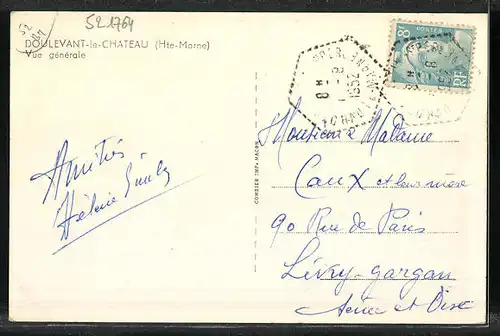 52
521764
DOULEVANT-le-CHATEAU (Hte-Marne)
Vue générale
8
1952
8 H
COMBIER IMP. MACON
Amitiés
Hélène
Monsieur et Madame
Caux et leur mère
90 Rue de Paris
Livry-Gargan
Seine et Oise